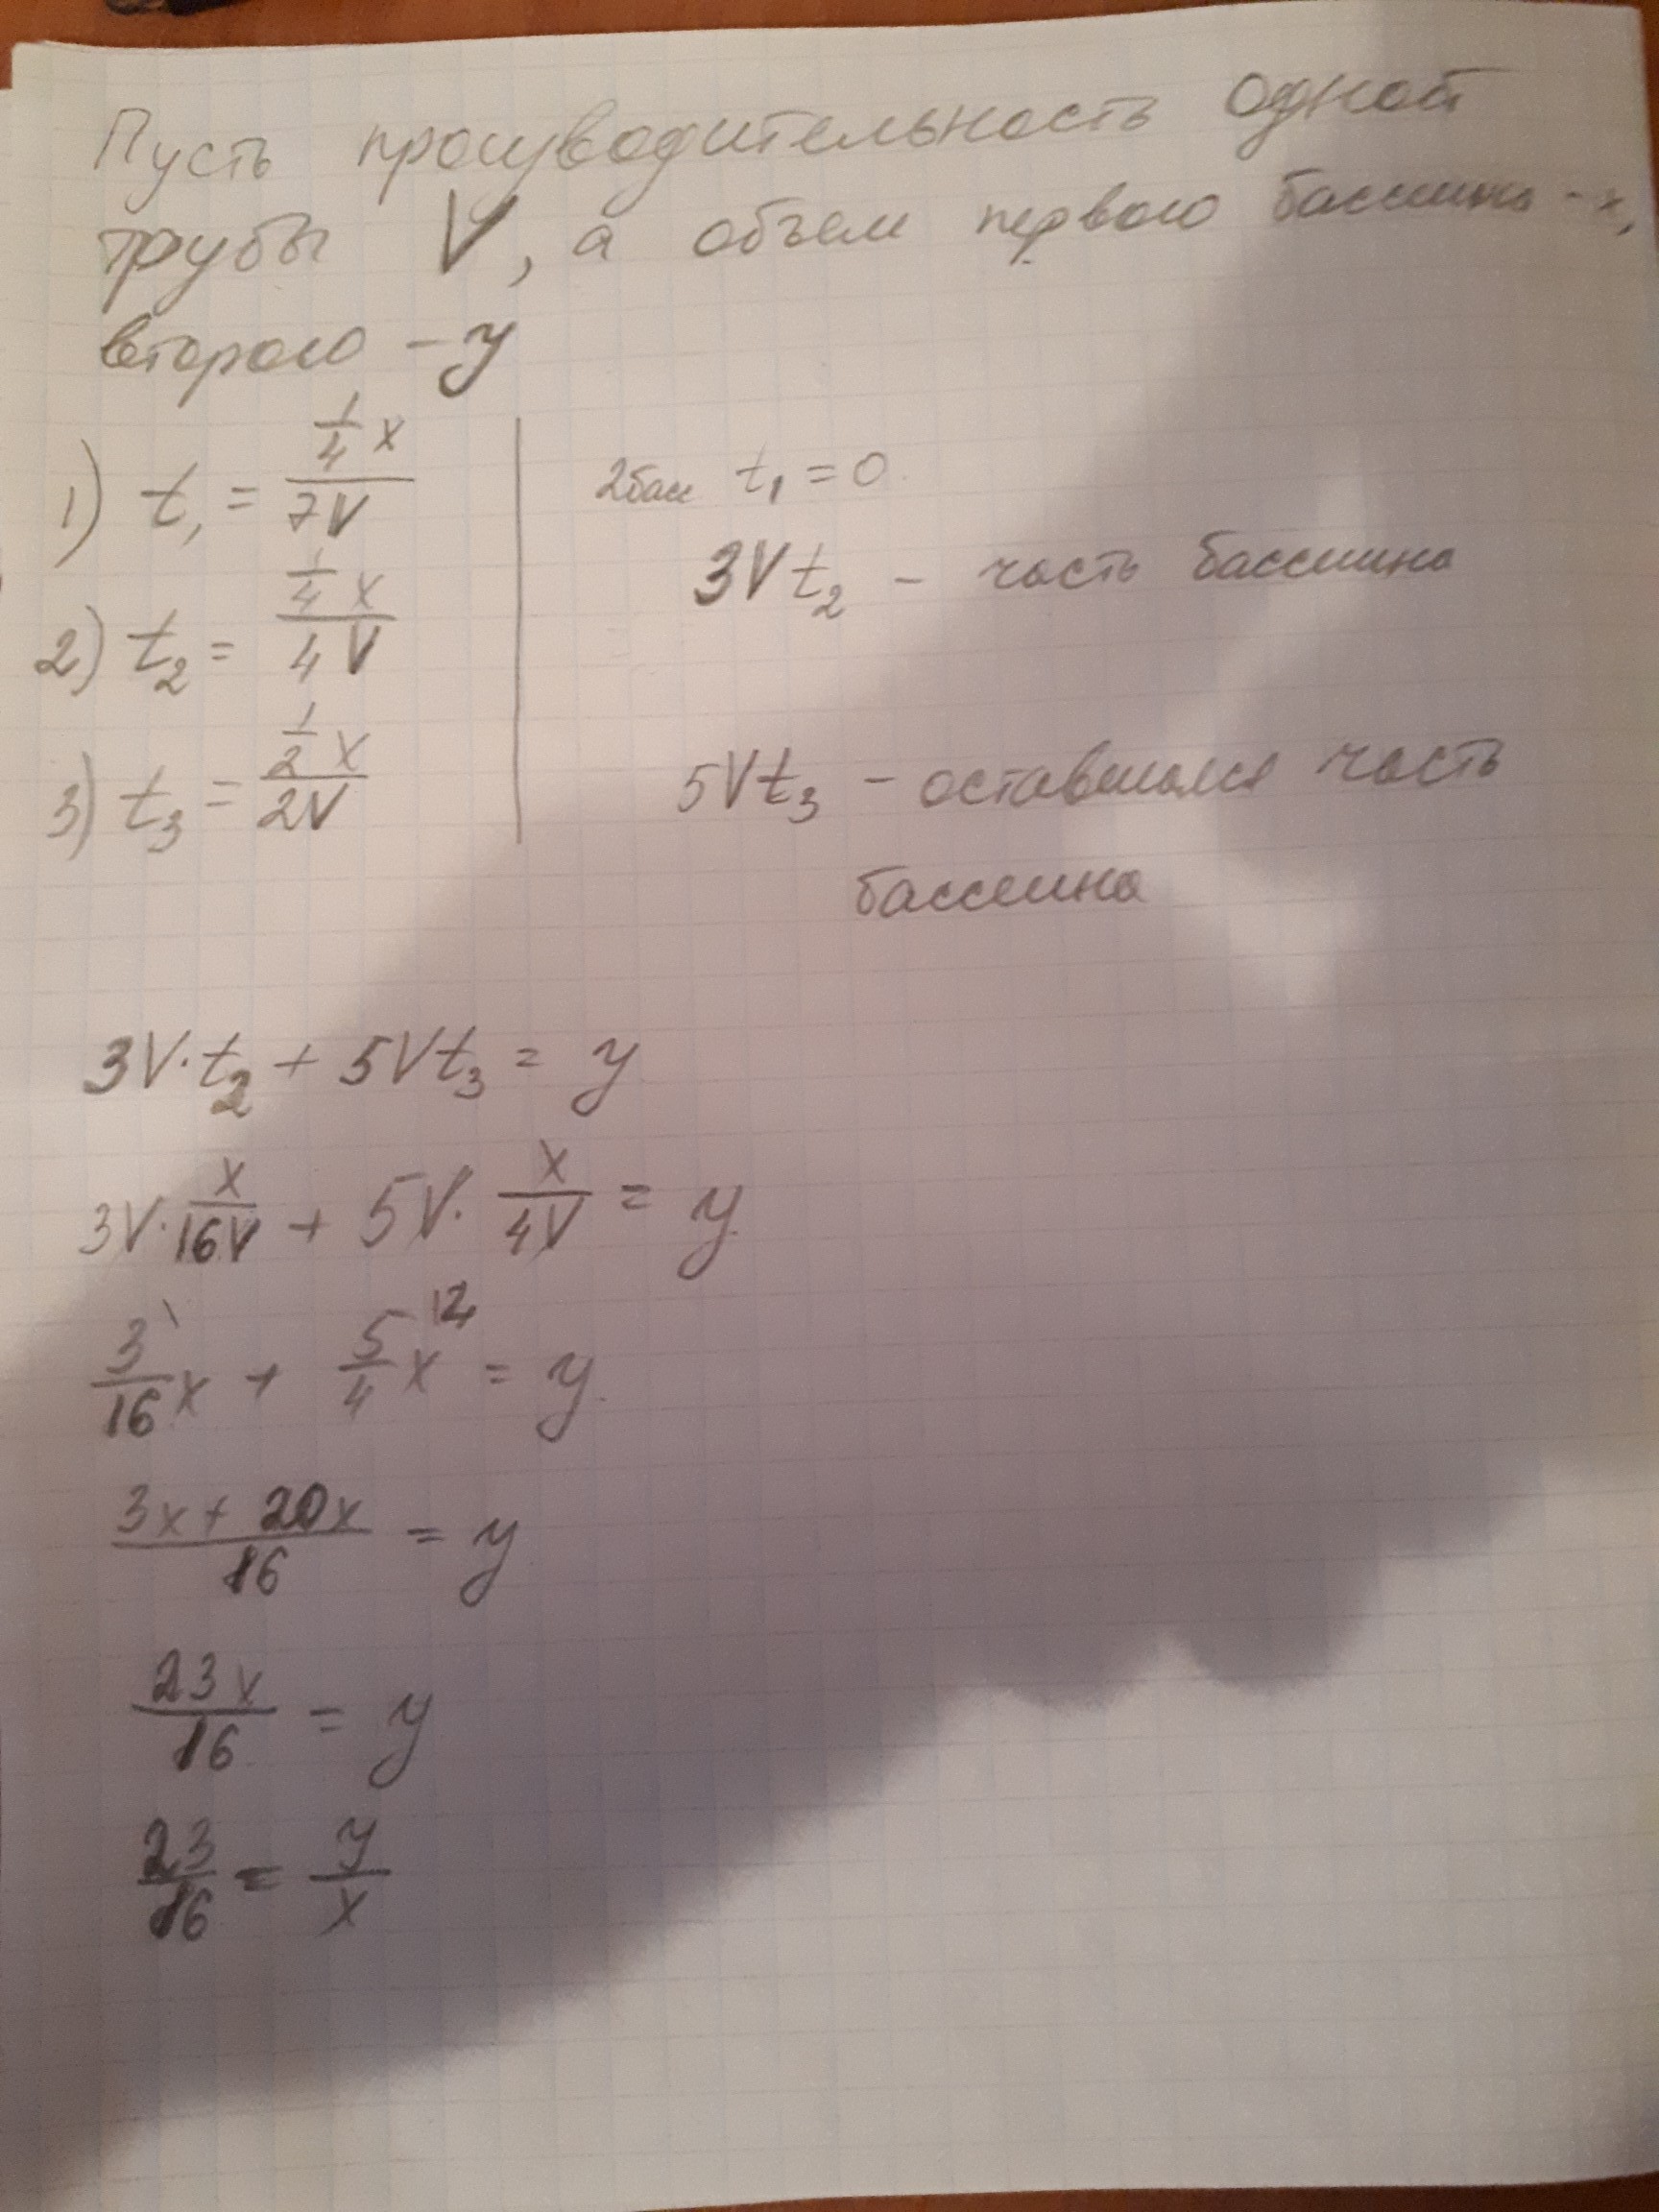 Пусть производительность одной
трубы V, а объем первого бассеина - x,
второго - y
1) t₁ = (1/4 x)/(7V)
2) t₂ = (1/4 x)/(4V)
3) t₃ = (1/2 x)/(2V)
2басс t₁ = 0.
3Vt₂ - часть бассеина
5Vt₃ - оставшаяся часть
бассеина
3V·t₂ + 5Vt₃ = y
3V·x/(16V) + 5V·x/(4V) = y
3/16 x + 5/4 x = y
(3x + 20x)/16 = y
23x/16 = y
23/16 = y/x